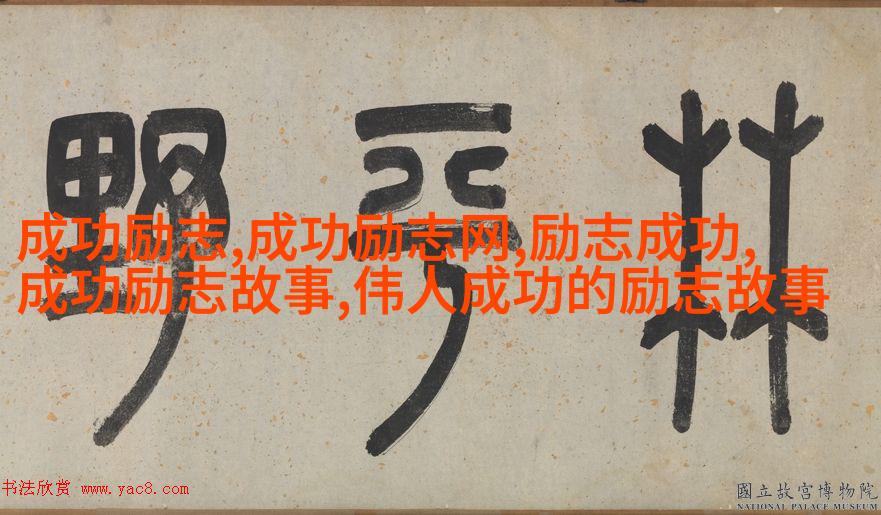 林平野
成功励志,成功励志网,励志成功,
成功励志故事,伟人成功的励志故事
书法欣赏 www.yac8.com
國立故宮博物院
NATIONAL PALACE MUSEUM